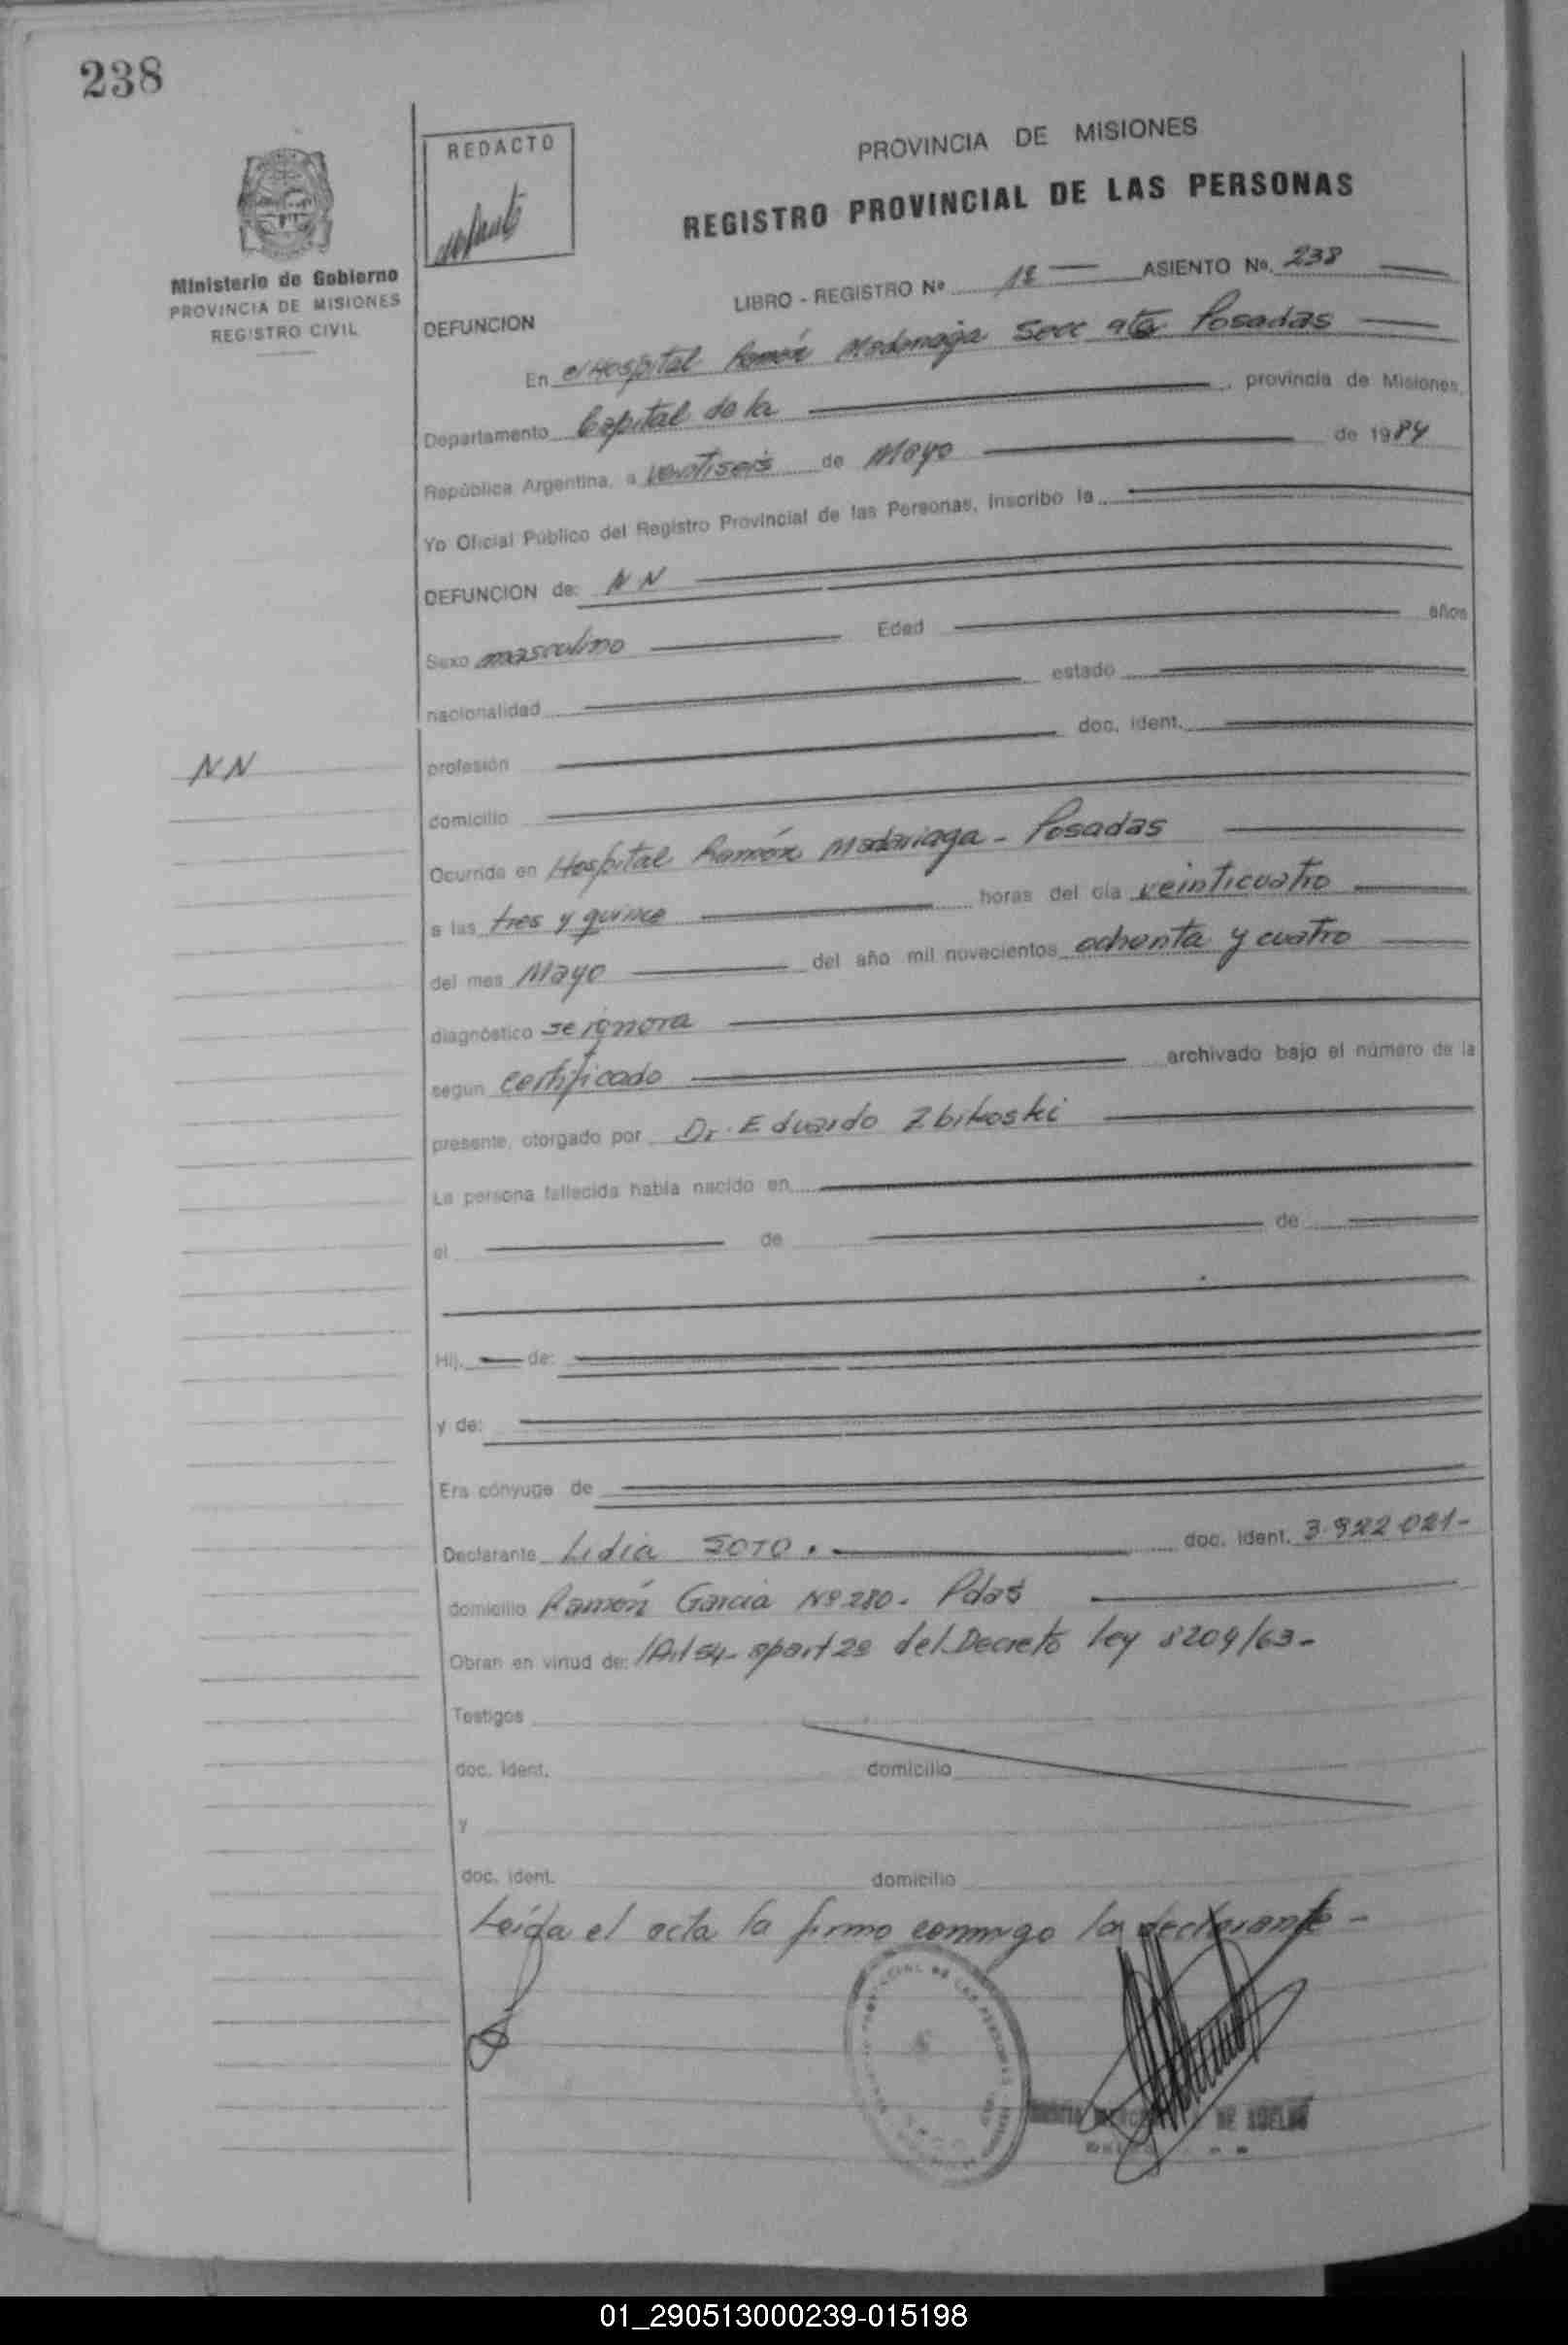 238
REDACTO
PROVINCIA DE MISIONES
REGISTRO PROVINCIAL DE LAS PERSONAS
Ministerio de Gobierno
PROVINCIA DE MISIONES
REGISTRO CIVIL
LIBRO - REGISTRO Nº ASIENTO No. 238
DEFUNCION
En el Hospital Ramón Madariaga Secc 4ta Posadas
Departamento Capital de la provincia de Misiones,
República Argentina, a veintiseis de Mayo de 1984
Yo Oficial Público del Registro Provincial de las Personas, inscribo la
DEFUNCION de: NN
Sexo masculino Edad años
nacionalidad estado
NN
profesión doc. ident.
domicilio
Ocurrida en Hospital Ramón Madariaga - Posadas
a las tres y quince horas del día veinticuatro
del mes Mayo del año mil novecientos ochenta y cuatro
diagnóstico se ignora
según certificado archivado bajo el número de la
presente, otorgado por Dr. Eduardo Zbikoski
La persona fallecida había nacido en
el de de
Hij. de:
y de:
Era cónyuge de
Declarante Lidia SOTO. doc. ident. 3.922.021-
domicilio Ramón Garcia Nº 280. Pdas
Obran en virtud de: Art 54- apart 2º del Decreto Ley 8204/63-
Testigos
doc. ident. domicilio
y
doc. ident. domicilio
Leída el acta la firmo conmigo la declarante-
01_290513000239-015198